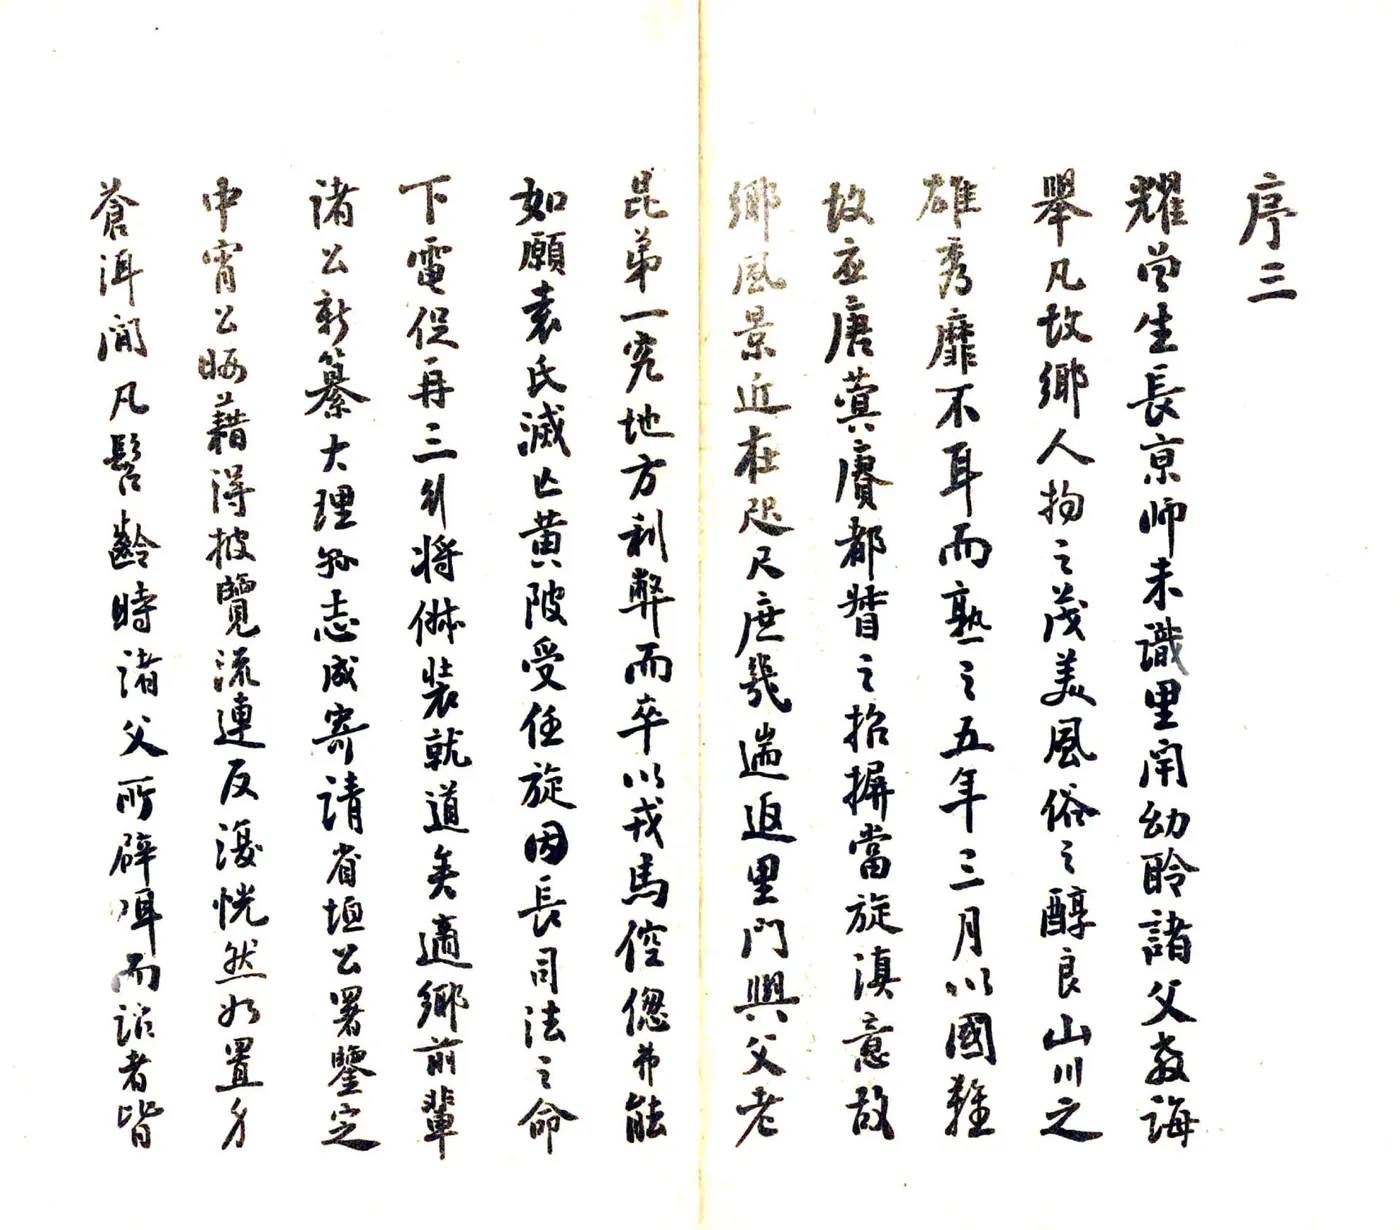 序三
耀曾生長京師未識里閈幼聆諸父教誨
舉凡故鄉人物之茂美風俗之醇良山川之
雄秀靡不耳而熟之五年三月以國難
故应唐蓂賡都督之招摒當旋滇意故
鄉風景近在咫尺庶幾遄返里門與父老
昆弟一究地方利弊而卒以戎馬倥傯弗能
如願袁氏滅亡黃陂受任旋因長司法之命
下電促再三引将俶裝就道矣適鄉前輩
諸公新纂大理縣志成寄請省垣公署鑒定
中宵公暇藉得披覽流連反復恍然如置身
蒼洱間凡髫齡時諸父所辟咡而詔者皆